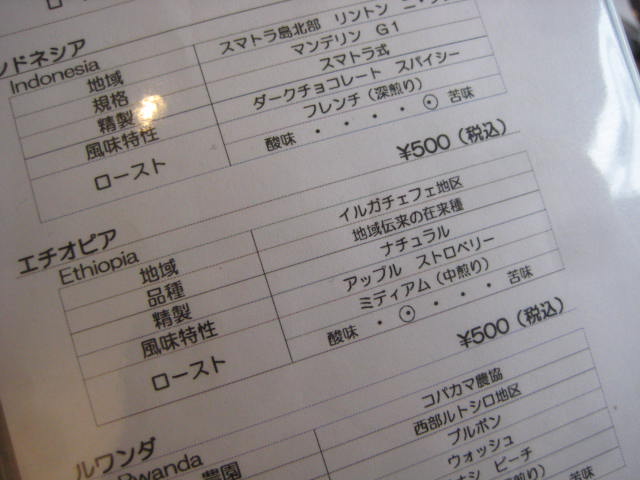 ンドネシア
Indonesia
地域 スマトラ島北部 リントン
規格 マンデリン G1
精製 スマトラ式
風味特性 ダークチョコレート スパイシー
ロースト フレンチ(深煎り)
酸味 ・ ・ ・ ・ ⦿ 苦味
¥500(税込)
エチオピア
Ethiopia
地域 イルガチェフェ地区
品種 地域伝来の在来種
精製 ナチュラル
風味特性 アップル ストロベリー
ロースト ミディアム(中煎り)
酸味 ・ ⦿ ・ ・ ・ 苦味
¥500(税込)
ルワンダ
Rwanda
農園 コパカマ農協
西部ルトシロ地区
ブルボン
ウォッシュ
ナシ ピーチ
煎り)
苦味